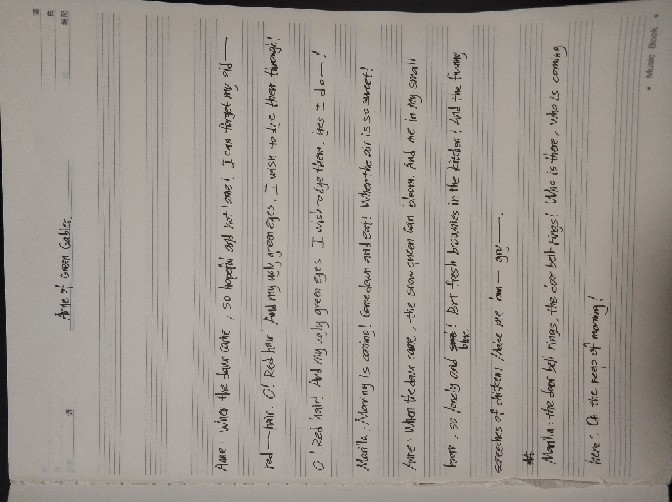 Anne of Green Gables.
Anne: When the dawn came, so hopeful and not lone! I can forget my old —
red — hair. O! Red hair! And my ugly green eyes. I wish to dye them through!
O! Red hair! And my ugly green eyes I wish to dye them, yes I do —!
Marilla: Morning is coming! Come down and eat! When the air is so sweet!
Anne: When the dawn came, the snow queen can bloom. And me in my small
born, so lonely and blue! But fresh brownies in the kitchen! And the funny
screeches of chicken! Make me hun — gry —.
Marilla: the door bell rings, the door bell rings! Who is there, who is coming
here? On the peep of morning!
• Music Book •